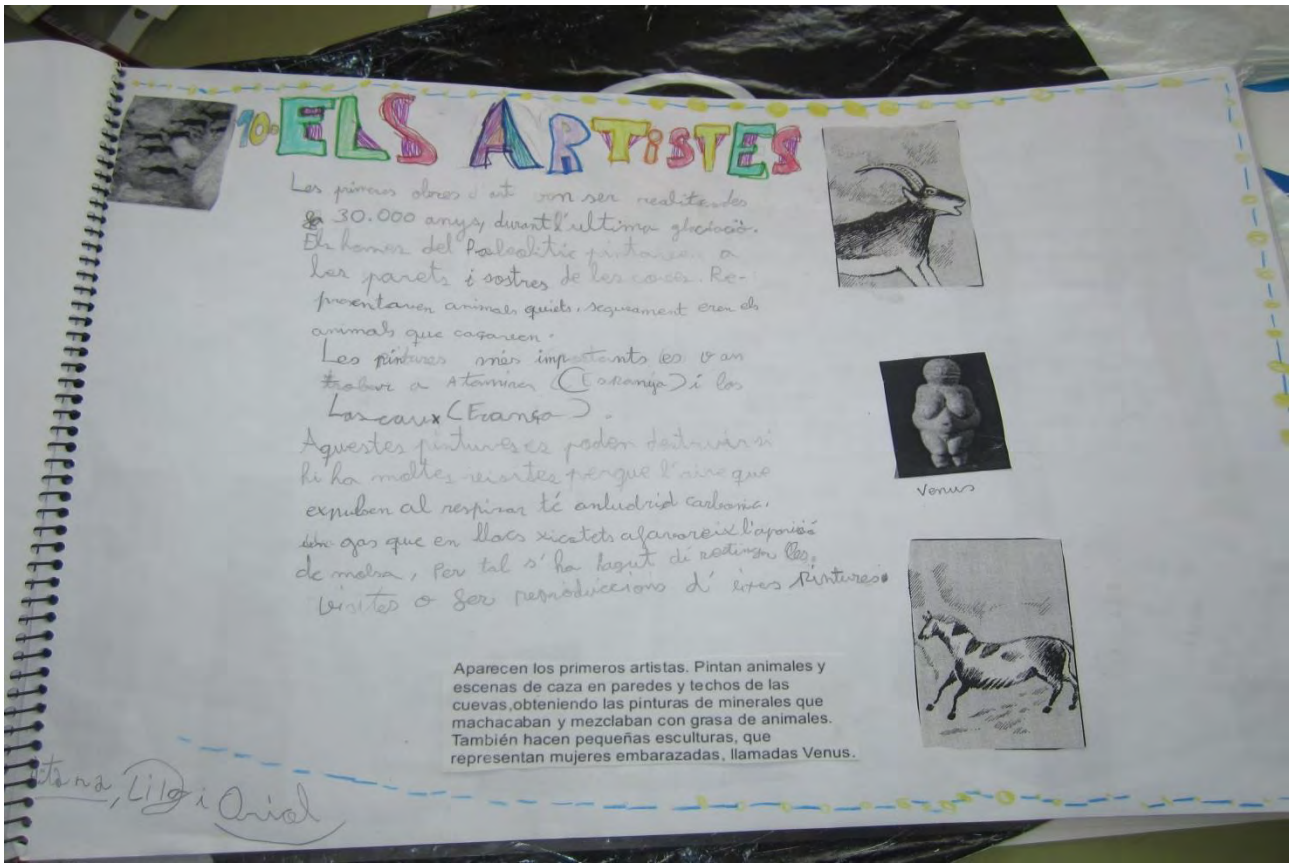 10. ELS ARTISTES
Les primeres obres d'art van ser realitzades
30.000 anys, durant l'ultima glaciació.
Els homes del Paleolitic pintaven a
les parets i sostres de les coves. Re-
presentaven animals quiets, segurament eren els
animals que caçaven.
Les pintures més importants es van
trobar a Atamira i los
Lascaux (França).
Aquestes pintures es poden destruir si
hi ha moltes visites perque l'aire que
expulsen al respirar té carbonic,
gas que en llocs xicotets afavoreix l'aparició
de molsa, Per tal s'ha hagut de les
visites o fer reproduccions d' eixes Pintures
Venus
Aparecen los primeros artistas. Pintan animales y
escenas de caza en paredes y techos de las
cuevas,obteniendo las pinturas de minerales que
machacaban y mezclaban con grasa de animales.
También hacen pequeñas esculturas, que
representan mujeres embarazadas, llamadas Venus.
i Oriol